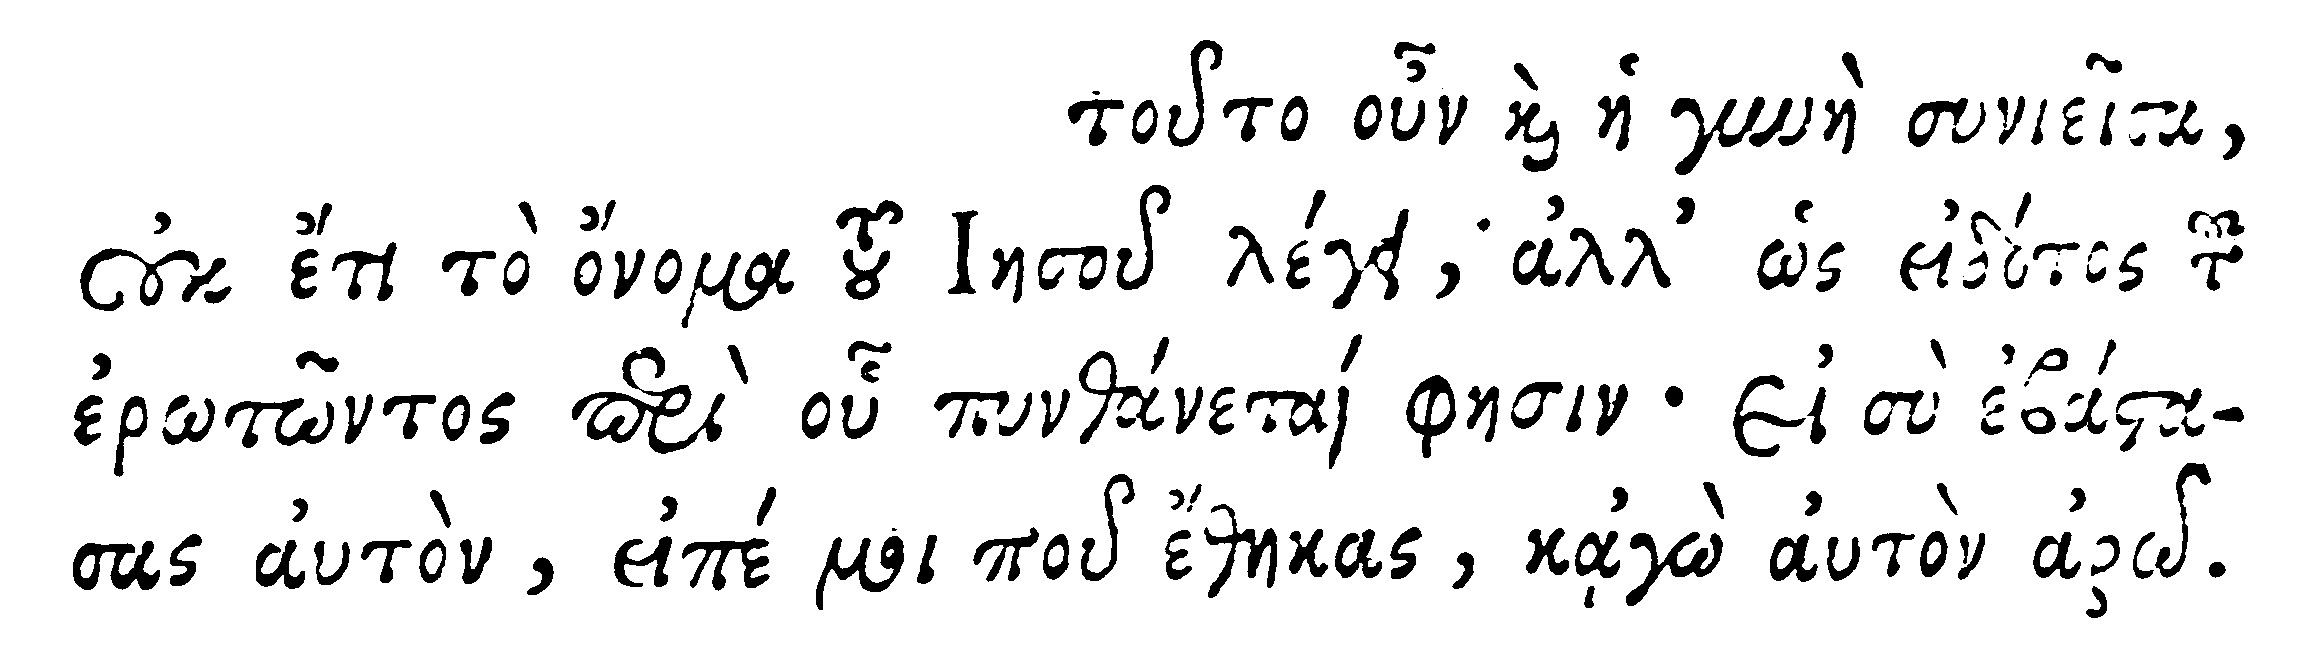 τοῦτο οὖν καὶ ἡ γυνὴ συνιεῖσα,
οὐκ ἔτι τὸ ὄνομα τοῦ Ιησοῦ λέγει, ἀλλ’ ὡς εἰδότος τοῦ
ἐρωτῶντος περὶ οὗ πυνθάνεταί φησιν· Εἰ σὺ ἐβάστα-
σας ἀυτὸν, εἰπέ μοι ποῦ ἔθηκας, κᾀγὼ ἀυτὸν ἀρῶ.